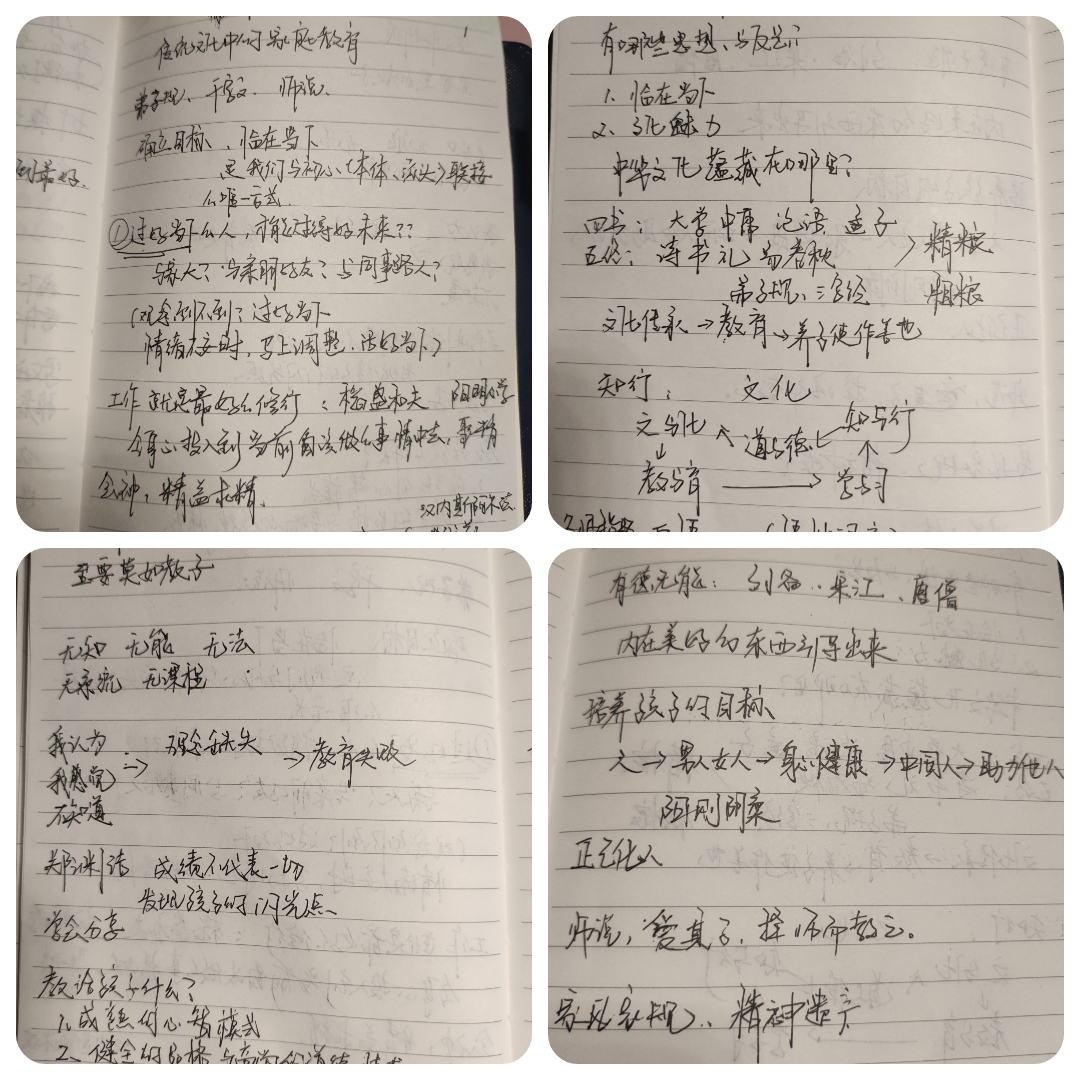 传统文化中的家庭教育
1
弟子规、千字文、师说、
确立目标、恰在当下
是我们与初心(本体、源头)联接
的唯一方式
①过好当下的人,才能过得好未来??
与家人?与亲朋好友?与同事路人?
(观念到不到?过好当下
情绪不定时,马上调整.活好当下)
工作就是最好的修行:稻盛和夫 阳明心学
全身心投入到当前自该做的事情中去,聚精
会神,精益求精.
汉内斯阿尔法
到最好.
有哪些思想、与反思:
1、恰在当下
2、文化魅力
中华文化蕴藏在哪里?
四书:大学中庸 论语 孟子
五经:诗书礼易春秋 > 精粮
弟子规、三字经 粗粮
文化传承→教育→养子使作善也
知行: 文化
文与化 道与德 知与行
教与育 → 学与习
至要莫如教子
无知 无能 无法
无系统 无课程
我认为
我感觉 → 理念缺失 → 教育失败
不知道
郑渊洁 成绩不代表一切
发现孩子的闪光点、
学会分享
教给孩子什么?
1、成熟的心智模式
2、健全的
有德无能:刘备、宋江、唐僧
内在美好的东西引导出来
培养孩子的目标、
人→男人女人→身心健康→中国人→助力他人
阳刚阴柔
正己化人
师说,爱其子,择师而教之.
家风家规、精神遗产